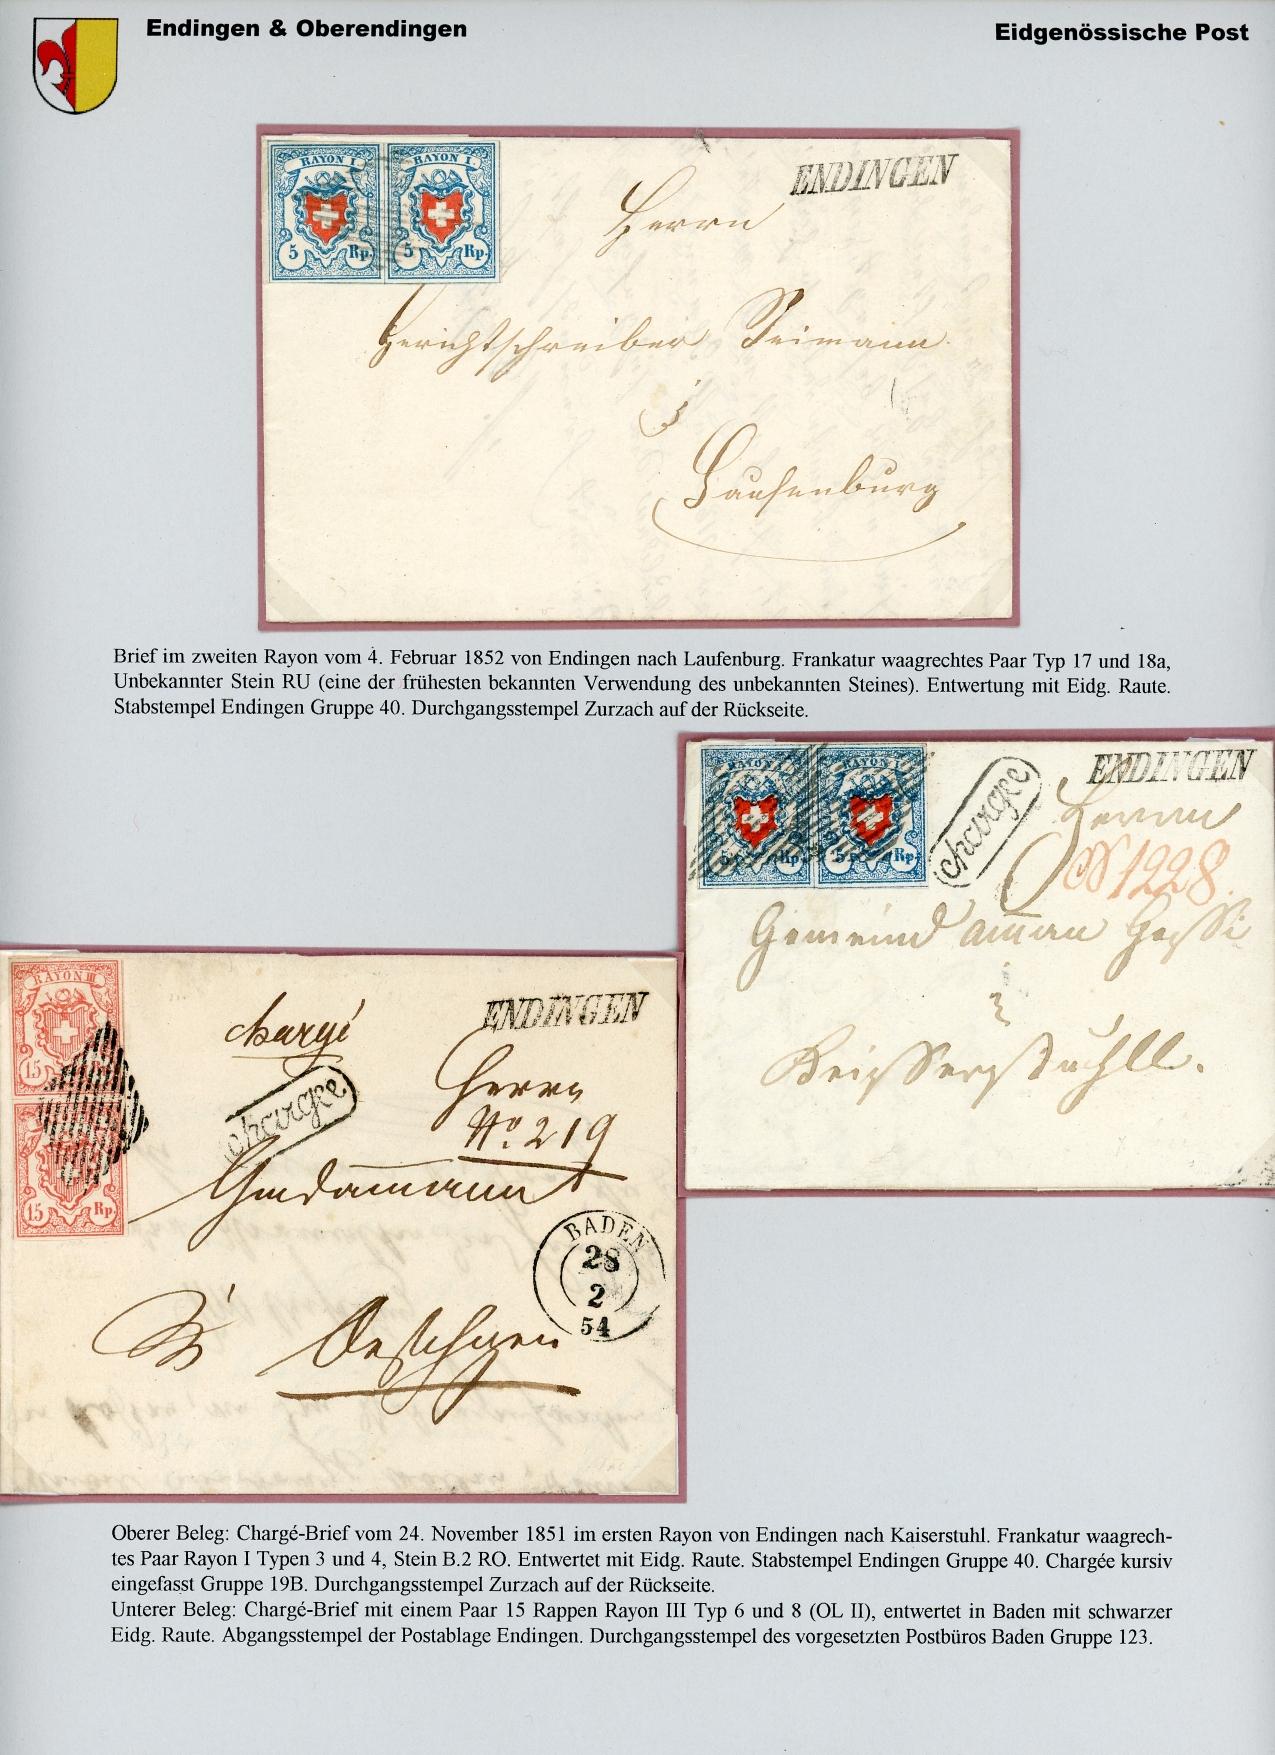 Endingen & Oberendingen
Eidgenössische Post
RAYON I. RAYON I.
5 Rp. 5 Rp.
ENDINGEN
Herrn
Gerichtschreiber
Laufenburg
Brief im zweiten Rayon vom 4. Februar 1852 von Endingen nach Laufenburg. Frankatur waagrechtes Paar Typ 17 und 18a,
Unbekannter Stein RU (eine der frühesten bekannten Verwendung des unbekannten Steines). Entwertung mit Eidg. Raute.
Stabstempel Endingen Gruppe 40. Durchgangsstempel Zurzach auf der Rückseite.
RAYON I. RAYON I.
5 Rp. 5 Rp.
chargée
ENDINGEN
Herrn
1228
Gemeind amman
Keisserstuhll.
RAYON III
15
15 Rp.
chargé
ENDINGEN
chargée
Herrn
No. 219
Gmdammann
BADEN
28
2
54
Oeschgen
Oberer Beleg: Chargé-Brief vom 24. November 1851 im ersten Rayon von Endingen nach Kaiserstuhl. Frankatur waagrech-
tes Paar Rayon I Typen 3 und 4, Stein B.2 RO. Entwertet mit Eidg. Raute. Stabstempel Endingen Gruppe 40. Chargée kursiv
eingefasst Gruppe 19B. Durchgangsstempel Zurzach auf der Rückseite.
Unterer Beleg: Chargé-Brief mit einem Paar 15 Rappen Rayon III Typ 6 und 8 (OL II), entwertet in Baden mit schwarzer
Eidg. Raute. Abgangsstempel der Postablage Endingen. Durchgangsstempel des vorgesetzten Postbüros Baden Gruppe 123.